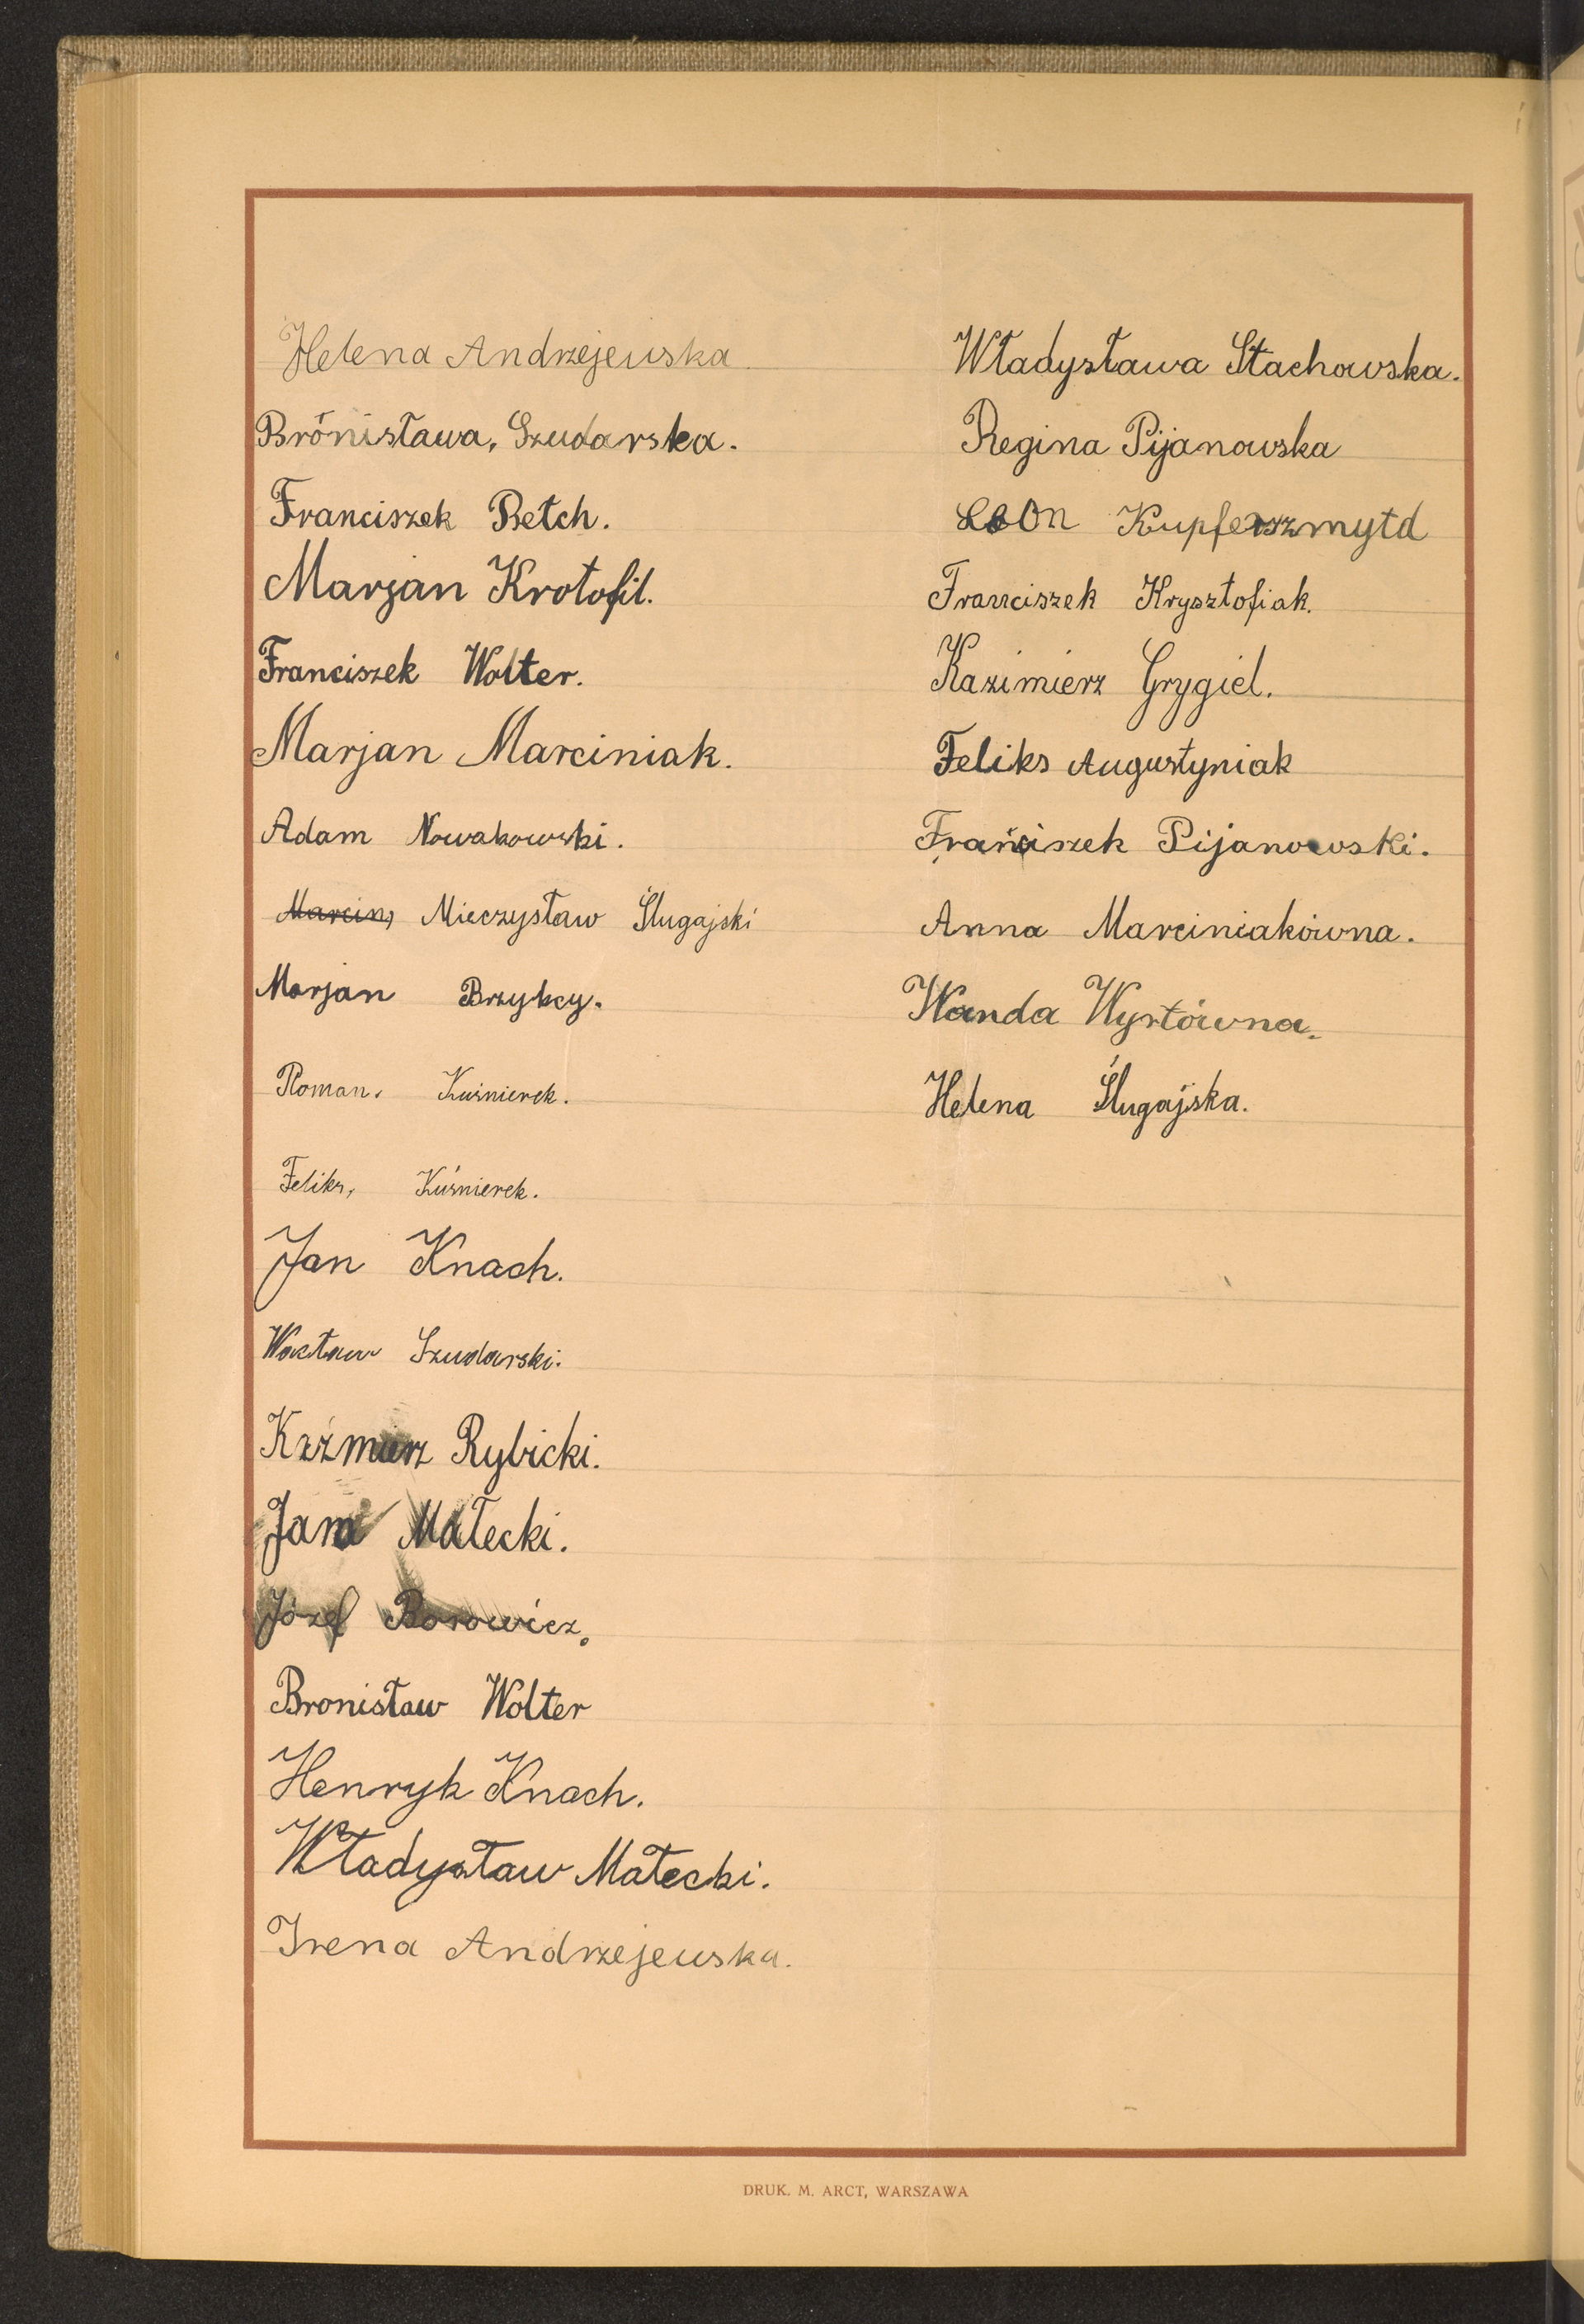 Helena Andrzejewska.
Brónisława, Szudarska.
Franciszek Betch.
Marjan Krotofil.
Franciszek Wolter.
Marjan Marciniak.
Adam Nowakowski.
Marcin, Mieczysław Ślugajski
Marjan Brzykcy.
Roman. Kuśnierek.
Feliks, Kuśnierek.
Jan Knach.
Wacław Szudarski.
Rybicki.
Jan Małecki.
Józef Borowicz.
Bronisław Wolter
Henryk Knach.
Władysław Małecki.
Irena Andrzejewska.
Władysława Stachowska.
Regina Pijanowska
Leon Kupferszmytd
Franciszek Krysztofiak.
Kazimierz Grygiel.
Feliks Augustyniak
Franciszek Pijanowski.
Anna Marciniakówna.
Wanda
Helena Ślugajska.
DRUK. M. ARCT, WARSZAWA